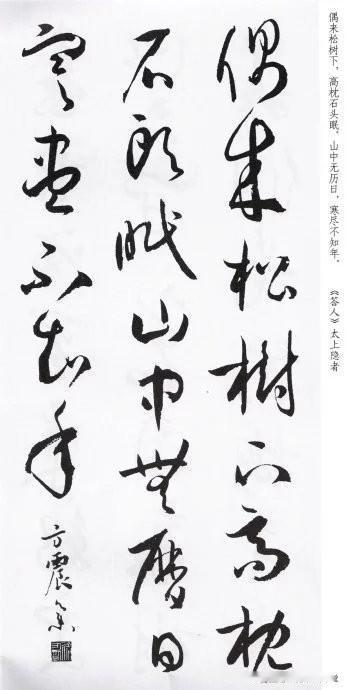 偶来松樹下高枕
石頭眠山中無曆日
寒盡不知年
方震
偶来松树下，高枕石头眠。山中无历日，寒尽不知年。 《答人》太上隐者